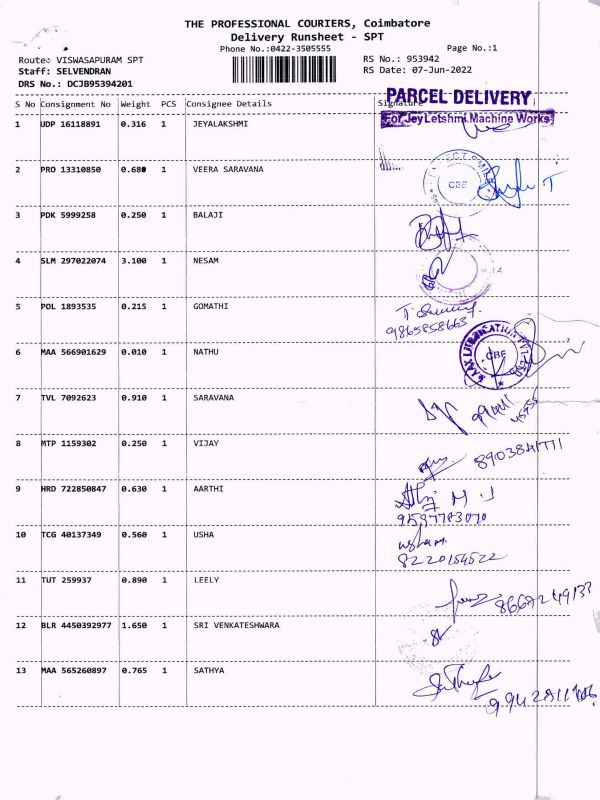 THE PROFESSIONAL COURIERS, Coimbatore
Delivery Runsheet - SPT
Phone No.:0422-3505555
Page No.:1
Route: VISWASAPURAM SPT
RS No.: 953942
Staff: SELVENDRAN
RS Date: 07-Jun-2022
DRS No.: DCJB95394201
S No Consignment No Weight PCS Consignee Details Signature
PARCEL DELIVERY
For JeyLetshmi Machine Works
1 UDP 16118891 0.316 1 JEYALAKSHMI
2 PRO 13310850 0.680 1 VEERA SARAVANA
CBE
3 PDK 5999258 0.250 1 BALAJI
4 SLM 297022074 3.100 1 NESAM
5 POL 1893535 0.215 1 GOMATHI
9865858663
6 MAA 566901629 0.010 1 NATHU
CBE
7 TVL 7092623 0.910 1 SARAVANA
8 MTP 1159302 0.250 1 VIJAY
9 HRD 722850847 0.630 1 AARTHI
M. J
10 TCG 40137349 0.560 1 USHA
8220154522
11 TUT 259937 0.890 1 LEELY
12 BLR 4450392977 1.650 1 SRI VENKATESHWARA
13 MAA 565260897 0.765 1 SATHYA